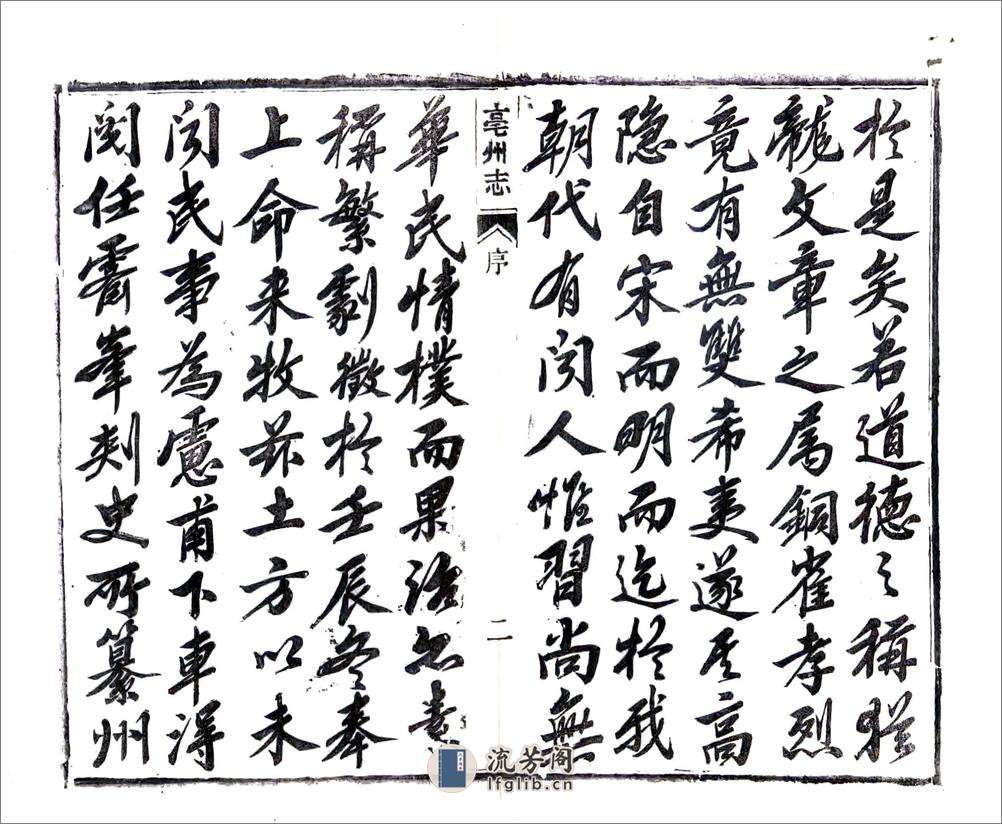 於是矣若道德之稱猶
龍文章之属銅雀孝烈
竟有無雙希夷遂其高
隐自宋而明而迄於我
朝代有闻人惟習尚無
亳州志
序
二
華民情樸而果治素
稱繁劇徵於壬辰冬奉
上命来牧兹土方以未
闻民事為慮甫下車得
閱任霽峯刺史所纂州
流芳阁
lfglib.cn